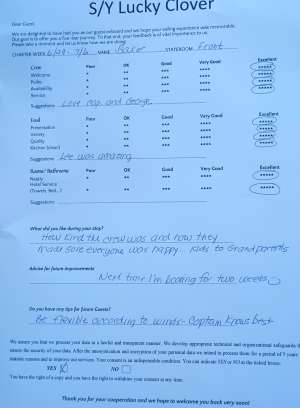 S/Y Lucky Clover
Dear Guest
We are delighted to have had you as our guest onboard and we hope your sailing experience was memorable.
Our goal is to offer you a five star journey. To that end, your feedback is of vital importance to us.
Please take a moment and let us know how we are doing.
CHARTER WEEK 6/29 - 7/6 NAME STATEROOM Front
Crew Poor OK Good Very Good Excellent
Welcome * ** *** **** *****
Polite * ** *** **** *****
Availability * ** *** **** *****
Service * ** *** **** *****
Suggestions Love Cap. and George
Food Poor OK Good Very Good Excellent
Presentation * ** *** **** *****
Variety * ** *** **** *****
Quality * ** *** **** *****
Kitchen (clean) * ** *** **** *****
Suggestions Lee was amazing
Room/ Bathrooms Poor OK Good Very Good Excellent
Neatly * ** *** **** *****
Hotel Service
(Towels, Bed,..) * ** *** **** *****
Suggestions
What did you like during your stay?
How kind the crew was and how they
made sure everyone was happy... kids to Grandparents
Advise for future improvements
Next time I'm booking for two weeks
Do you have any tips for future Guests?
Be flexible according to winds - Captain Knows best
We assure you that we process your data in a lawful and transparent manner. We develop appropriate technical and organizational safeguards
ensure the security of your data. After the anonymization and encryption of your personal data we intend to process them for a period of 7 years
statistic reasons and to improve our services. Your consent is an indispensable condition. You can indicate YES or NO in the linked boxes:
YES NO
You have the right of a copy and you have the right to withdraw your consent at any time.
Thank you for your cooperation and we hope to welcome you back very soon!